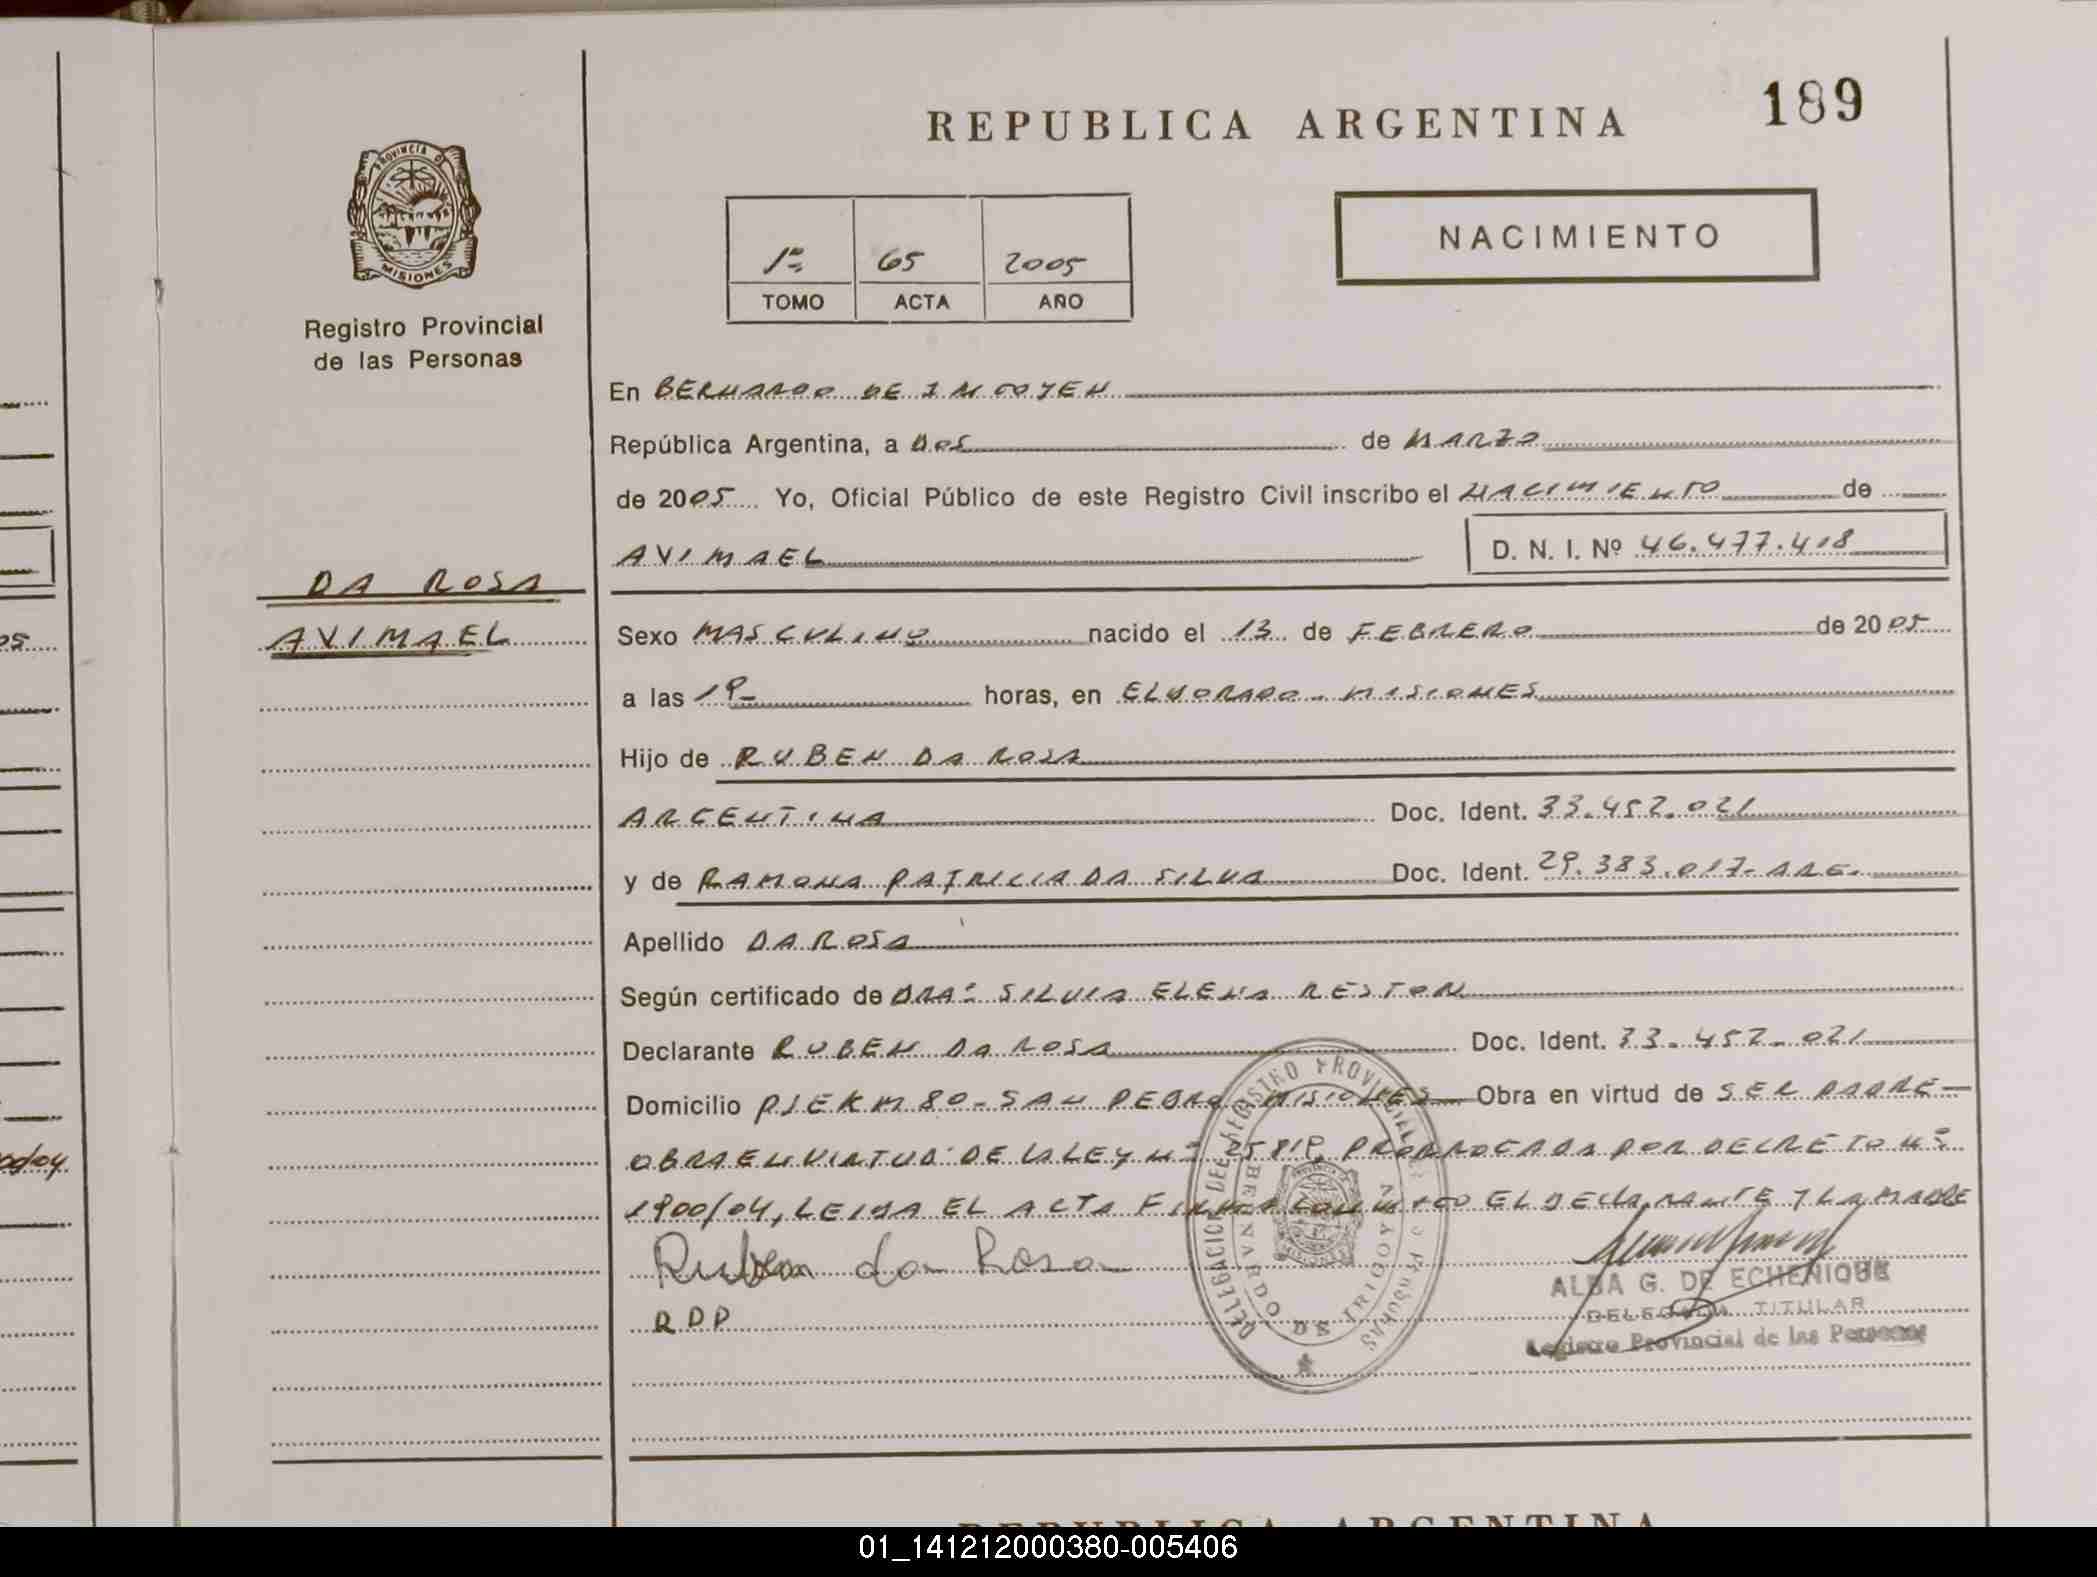 REPUBLICA ARGENTINA
189
PROVINCIA DE
MISIONES
Registro Provincial
de las Personas
1º 65 2005
TOMO ACTA AÑO
NACIMIENTO
En BERNARDO DE IRIGOYEN
República Argentina, a DOS de MARZO
de 2005 Yo, Oficial Público de este Registro Civil inscribo el NACIMIENTO de
AVIMAEL D. N. I. Nº 46.477.418
DA ROSA
AVIMAEL
Sexo MASCULINO nacido el 13 de FEBRERO de 2005
a las 19 horas, en ELDORADO - MISIONES
Hijo de RUBEN DA ROSA
ARGENTINA Doc. Ident. 33.452.021
y de RAMONA PATRICIA DA SILVA Doc. Ident. 29.383.017- ARG.
Apellido DA ROSA
Según certificado de DRAª SILVIA ELENA RESTON
Declarante RUBEN DA ROSA Doc. Ident. 33.452.021
Domicilio PJE KM 80 - SAN PEDRO MISIONES Obra en virtud de SER PADRE
OBRA EN VIRTUD DE LA LEY Nº 25819, PRORROGADA POR DECRETO Nº
1900/04, LEIDA EL ACTA FIRMA CONMIGO EL DECLARANTE Y LA MADRE
Ruben da Rosa
RDP
DELEGACION DEL REGISTRO PROVINCIAL DE LAS PERSONAS
BERNARDO DE IRIGOYEN
MISIONES
ALBA G. DE ECHENIQUE
DELEGADA TITULAR
Registro Provincial de las Personas
REPUBLICA ARGENTINA
01_141212000380-005406